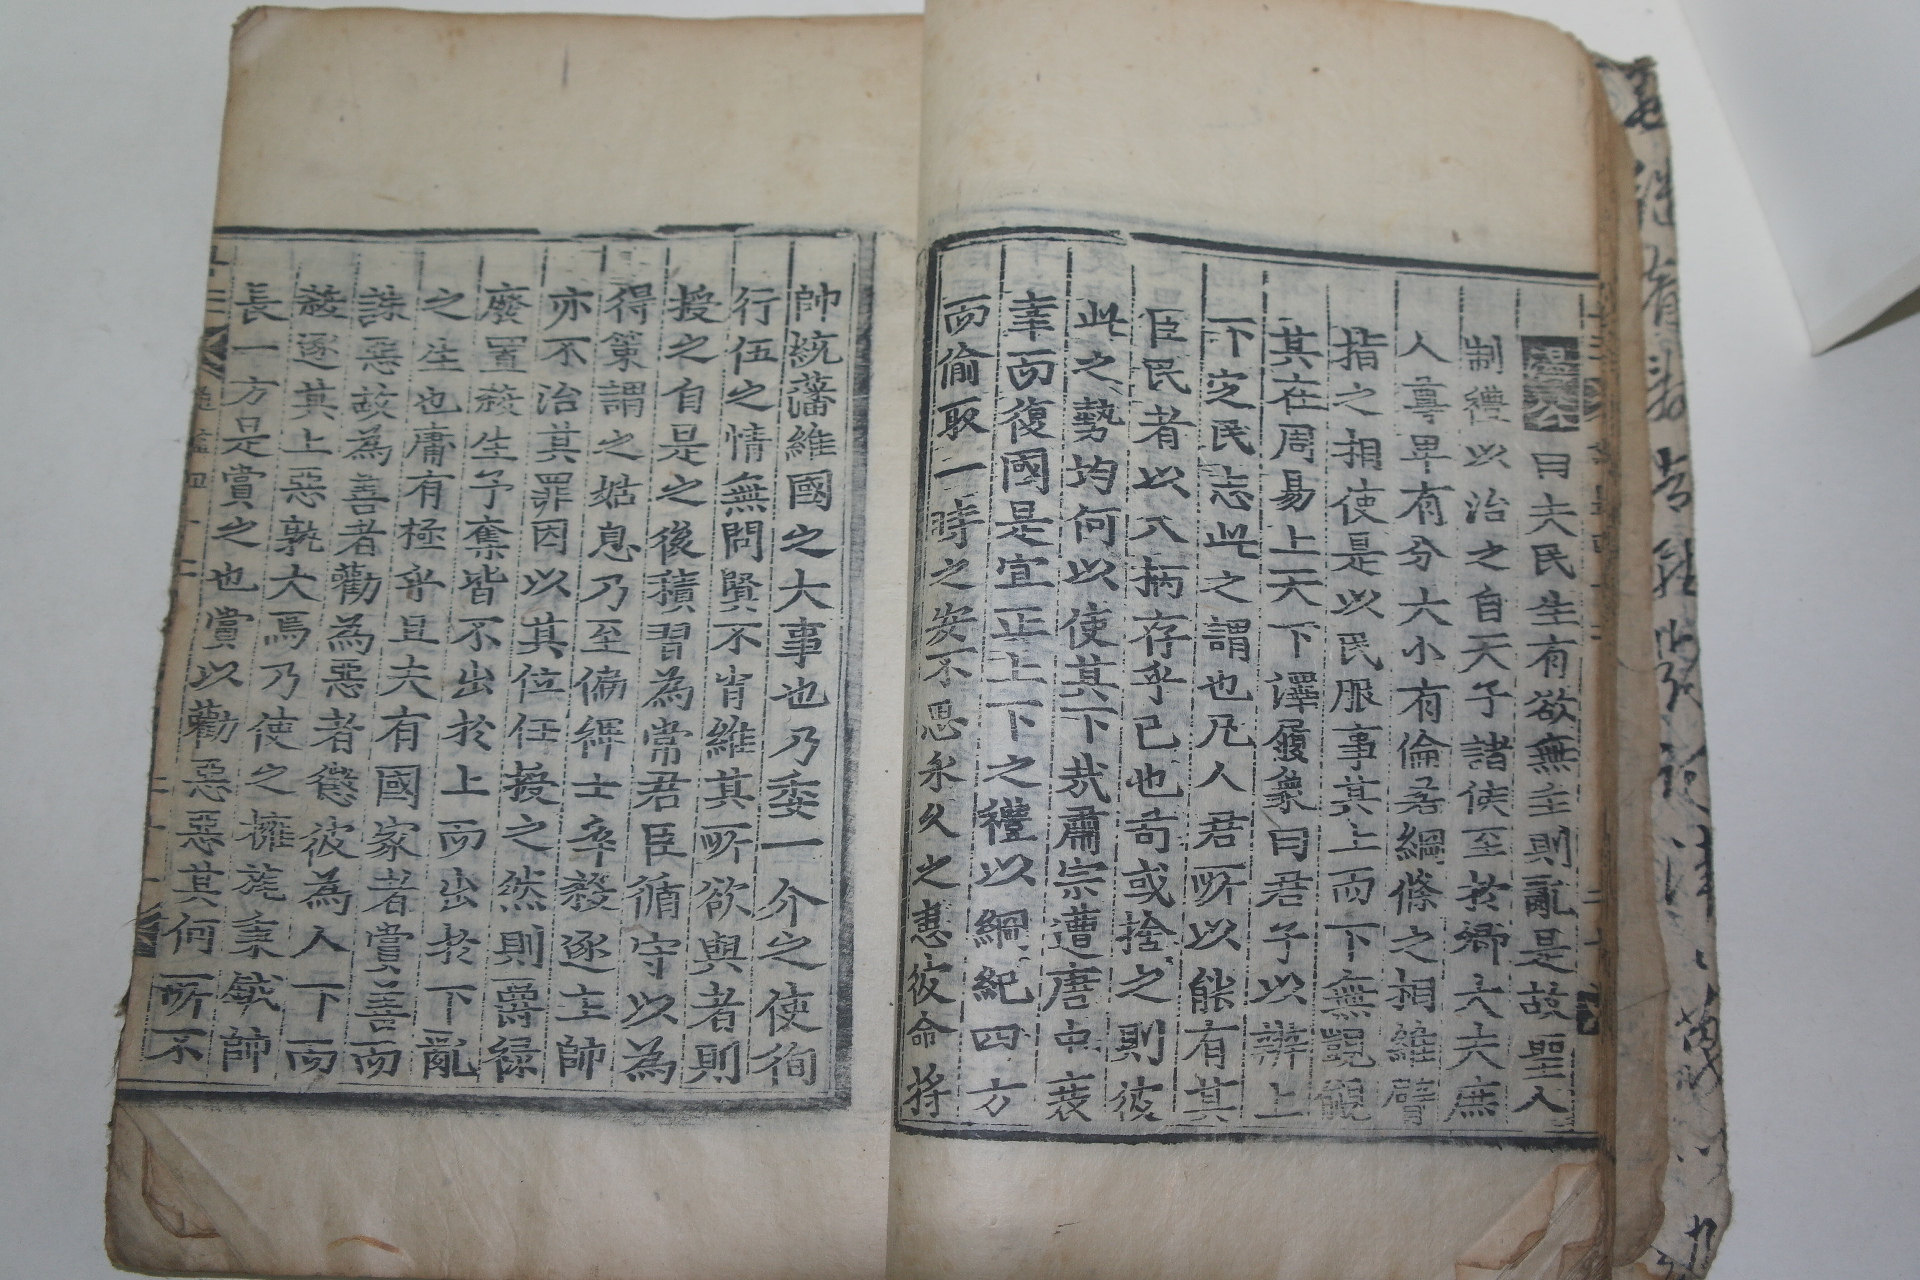 溫公曰夫民生有欲無主則亂是故聖人
制禮以治之自天子諸侯至於卿大夫庶
人尊卑有分大小有倫若綱條之相維臂
指之相使是以民服事其上而下無覬覦
其在周易上天下澤履象曰君子以辨上
下定民志此之謂也凡人君所以能有其
臣民者以八柄存乎已也苟或捨之則彼
此之勢均何以使其下哉肅宗遭唐中衰
幸而復國是宜正上下之禮以綱紀四方
而偷取一時之安不思永久之患彼命將
帥統藩維國之大事也乃委一介之使徇
行伍之情無問賢不肖維其所欲與者則
授之自是之後積習為常君臣循守以為
得策謂之姑息乃至偏裨士卒殺逐主帥
亦不治其罪因以其位任授之然則爵祿
廢置殺生予奪皆不出於上而出於下亂
之生也庸有極乎且夫有國家者賞善而
誅惡故為善者勸為惡者懲彼為人下而
殺逐其上惡孰大焉乃使之擁旄秉鉞帥
長一方是賞之也賞以勸惡惡其何所不